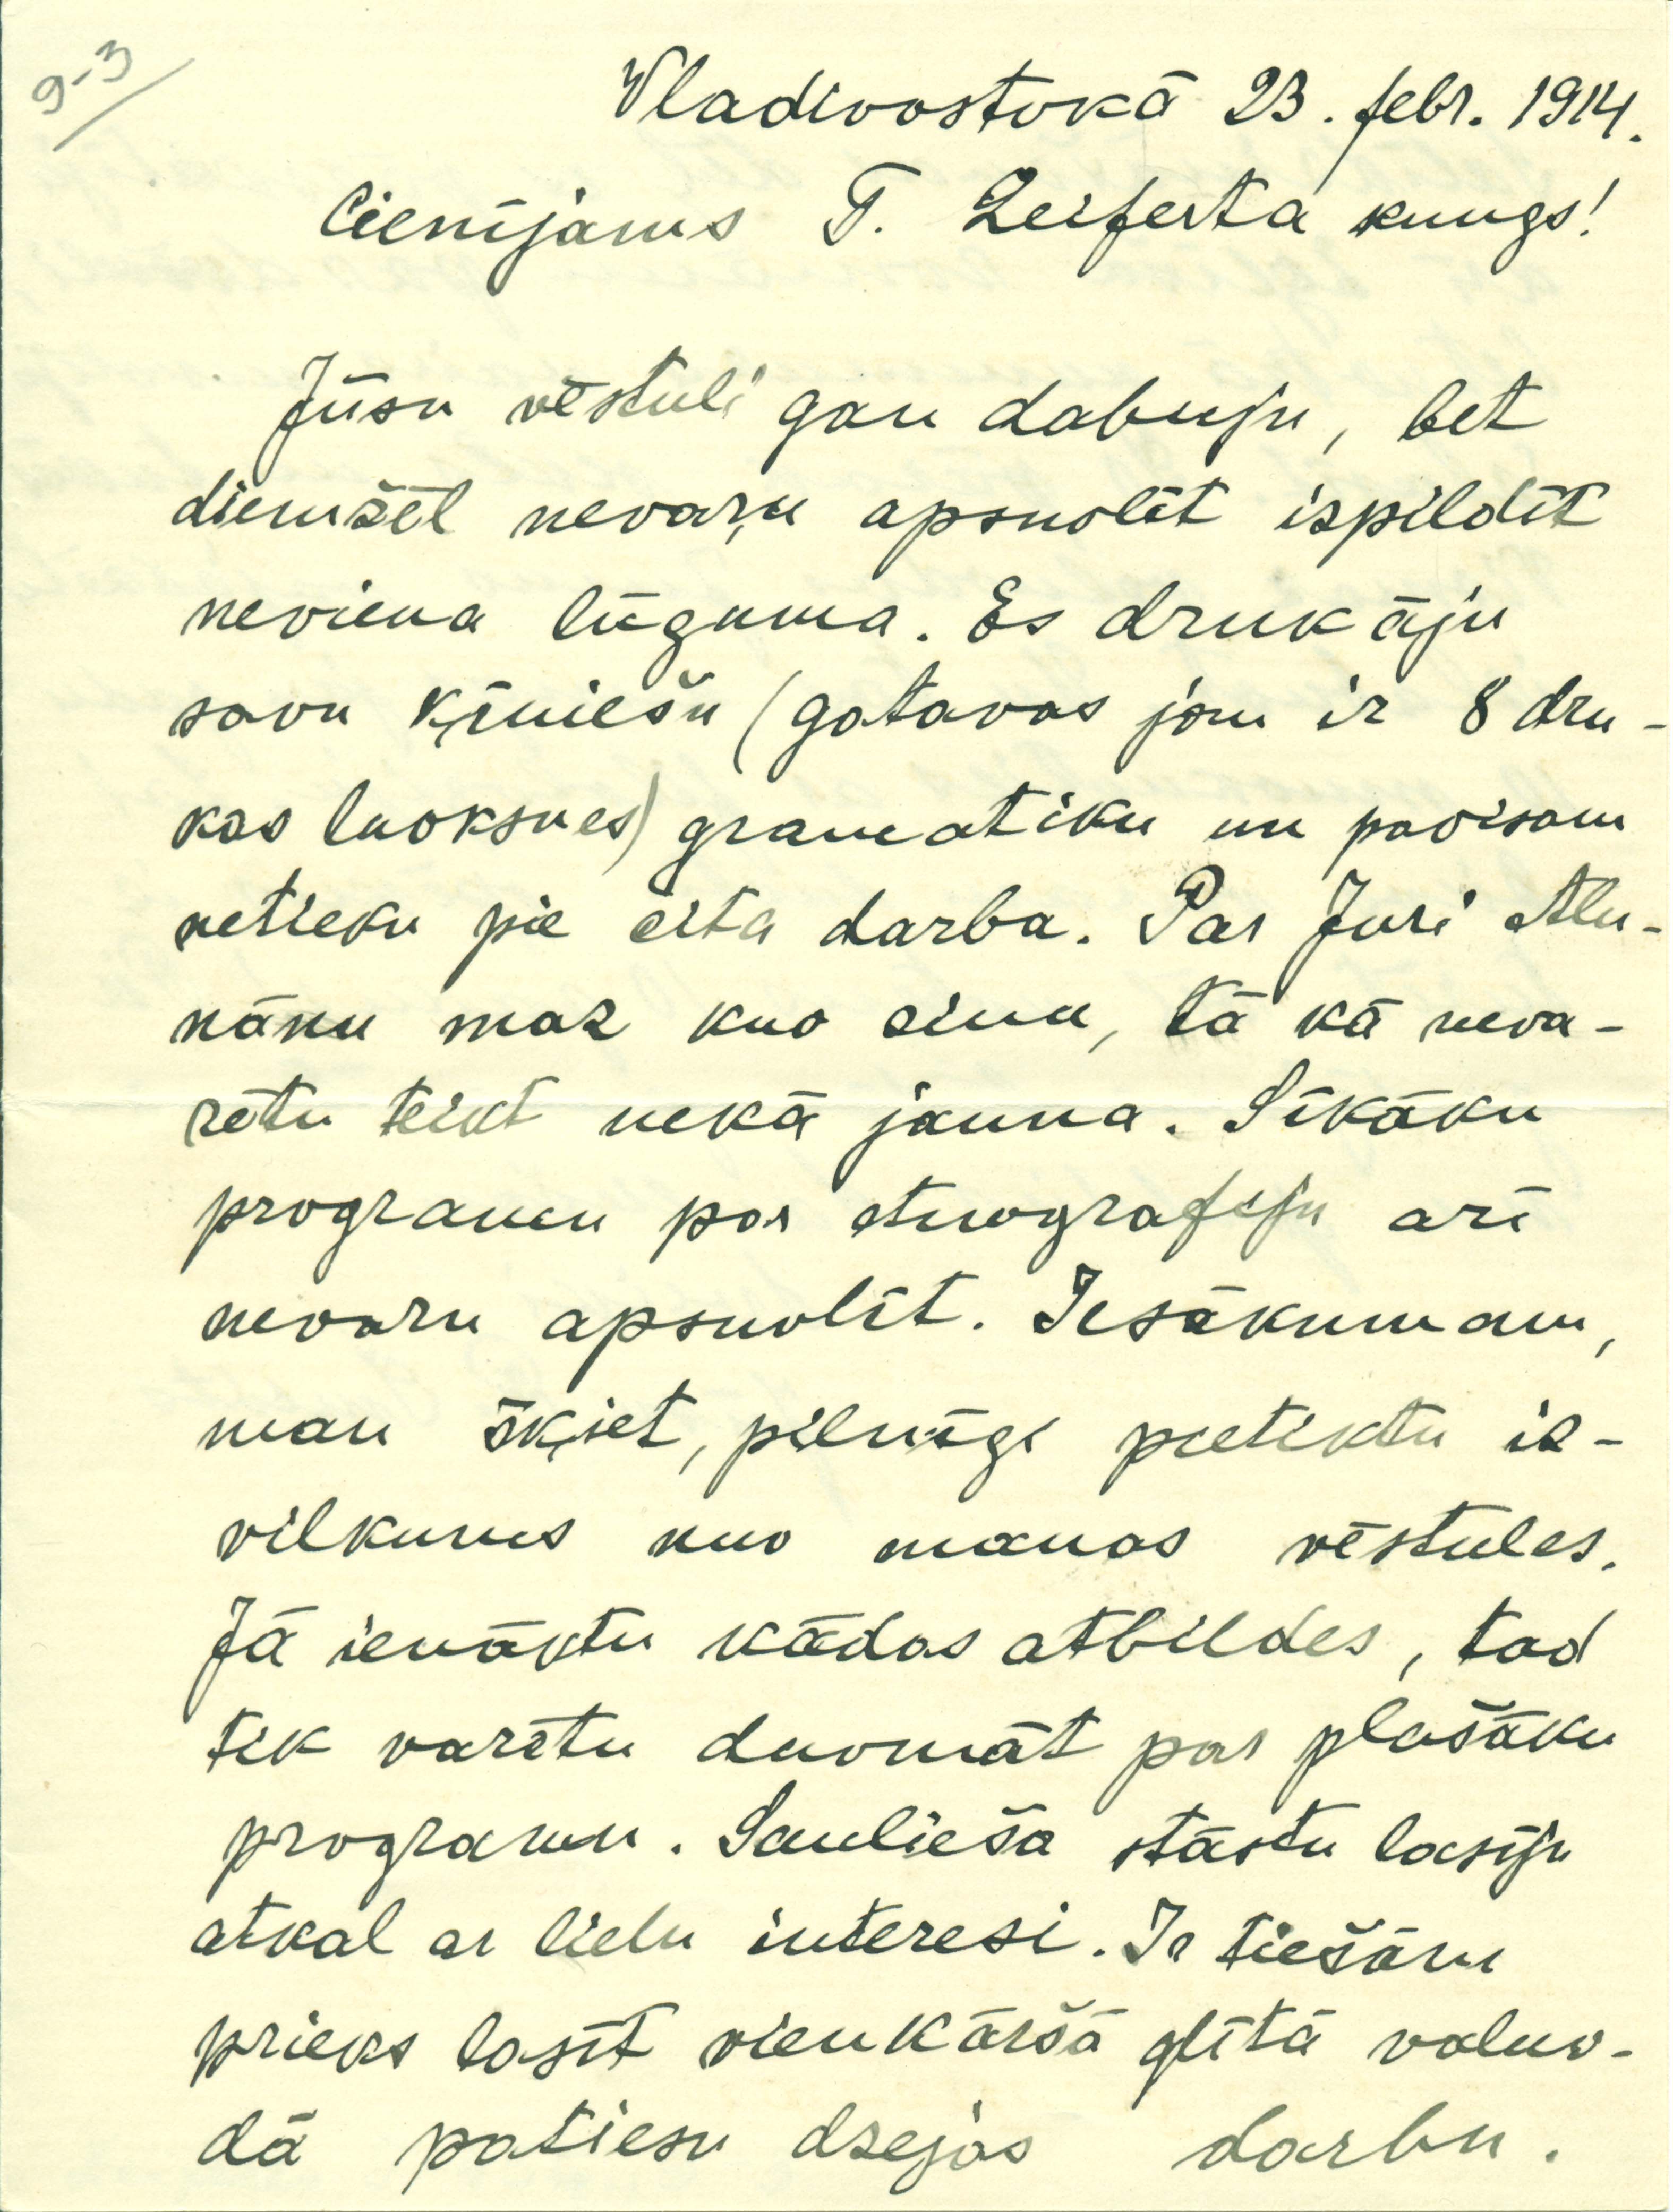 9-3
Vladivostokā 23. febr. 1914.
Cienījams T. Zeiferta kungs!
Jūsu vēstuli gan dabuju, bet
diemžēl nevaŗu apsuolīt ispildīt
neviena lūguma. Es drukāju
savu ķīniešu (gatavas jau ir 8 dru-
kas luoksnes) gramatiku un pavisam
netieku pie cita darba. Par Juri Alu-
nānu maz kuo zinu, tā kā neva-
rētu teikt nekā jauna. Sīkāku
programu par etnografiju arī
nevaru apsuolīt. Iesākumam,
man šķiet, pilnīgi pietiktu iz-
vilkums nuo manas vēstules.
Jā ienāktu kādas atbildes, tad
tik varētu duomāt par plašāku
programu. Saulieša stāstu lasīju
atkal ar lielu interesi. Ir tiešām
prieks lasīt vienkāršā glītā valuo-
dā patiesu dzejas darbu.